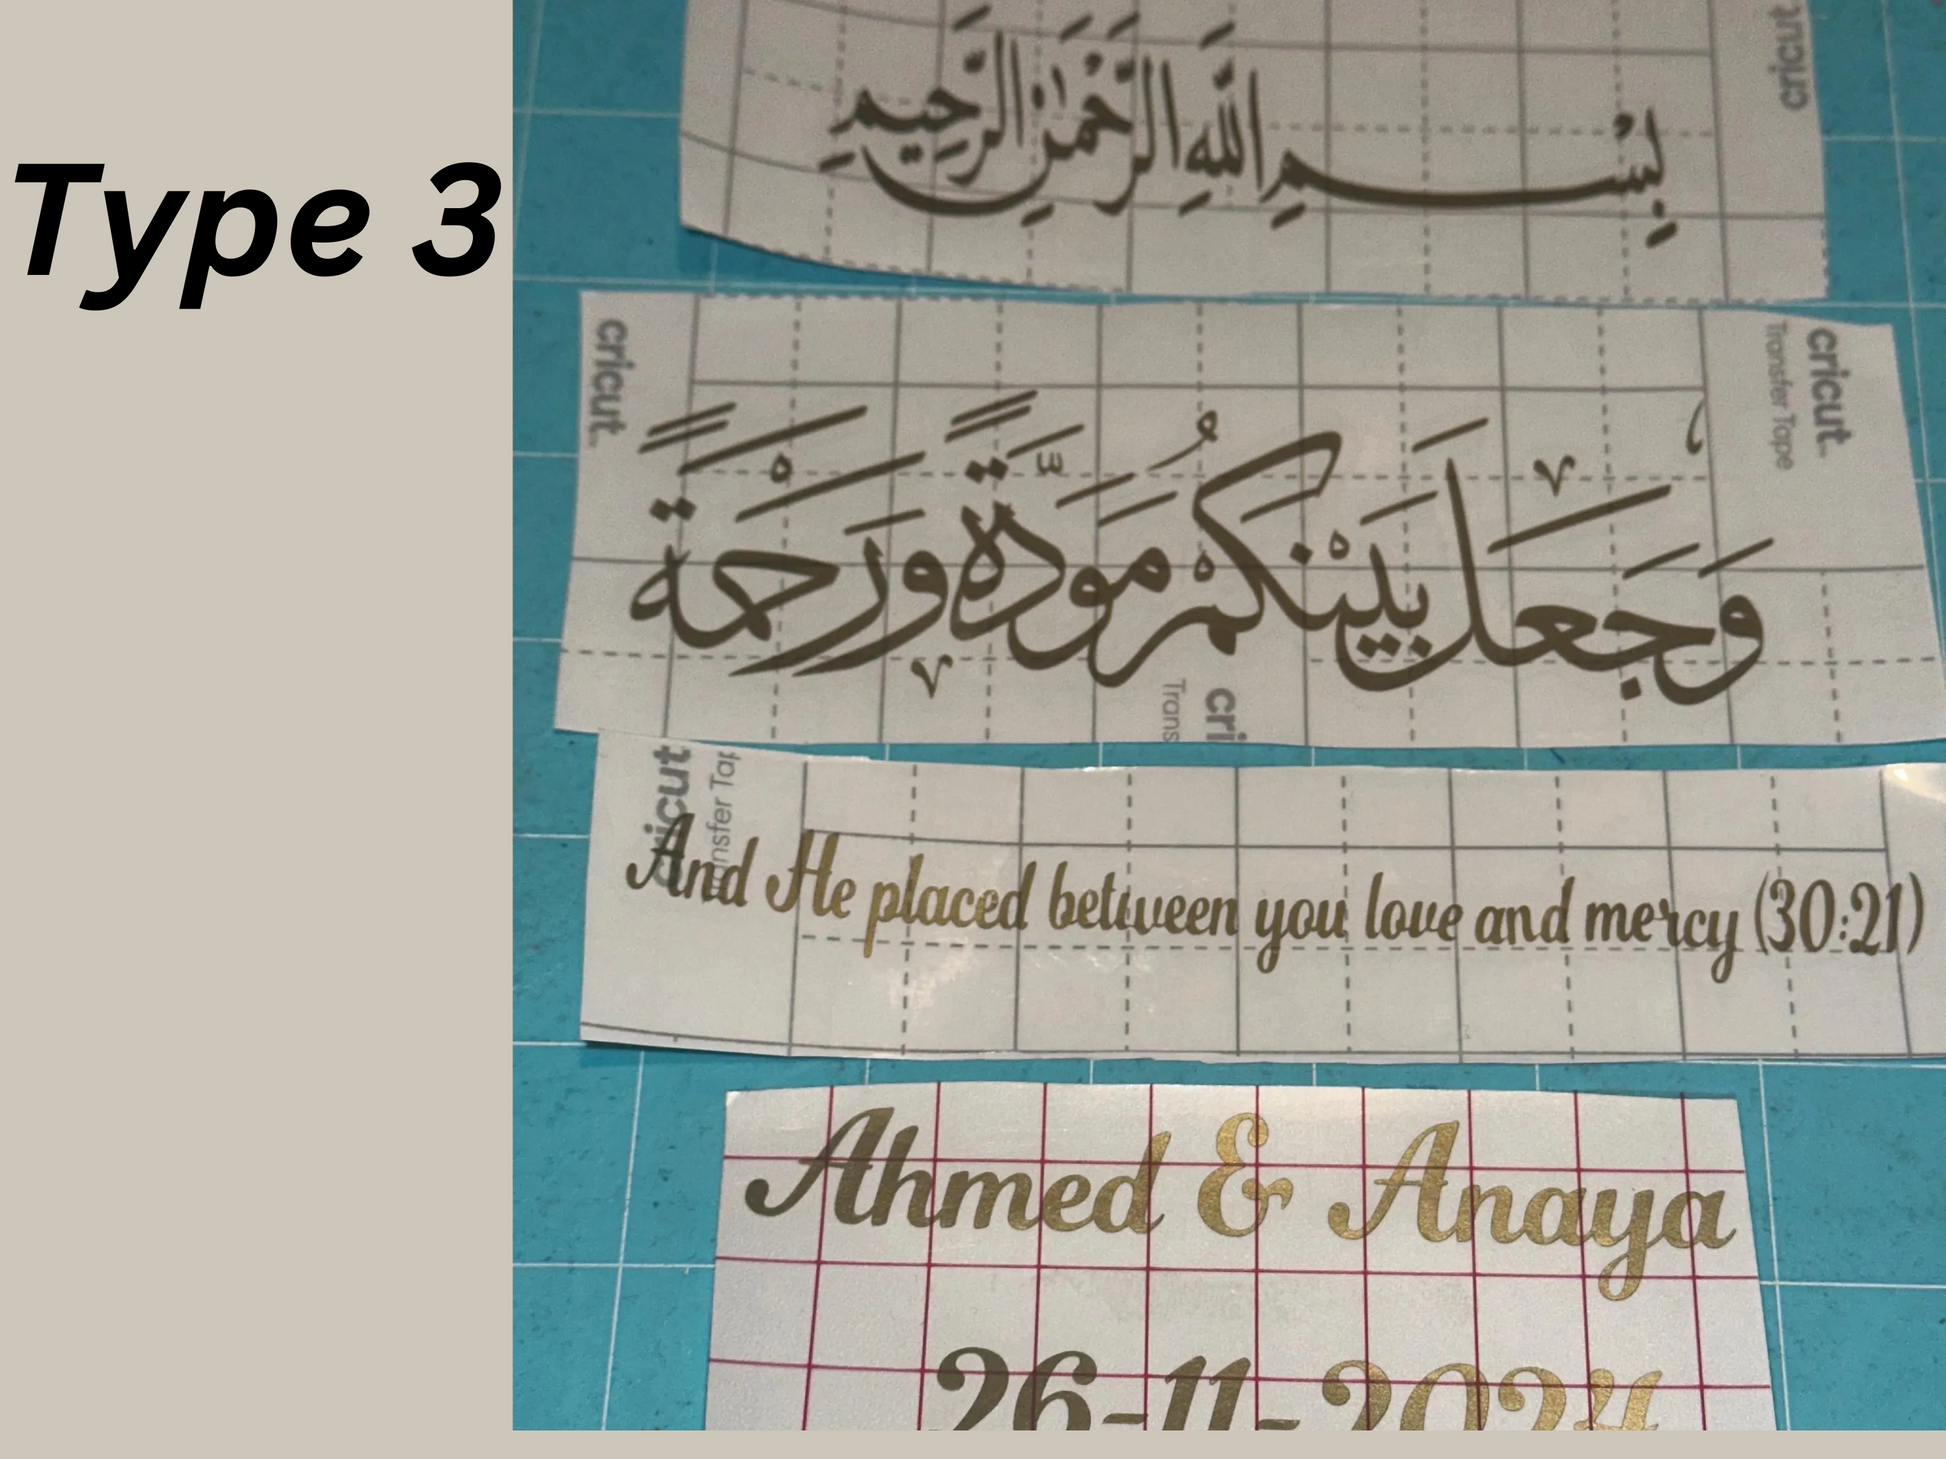 Type 3
cricut
بِسْمِ اللّٰهِ الرَّحْمٰنِ الرَّحِيمِ
cricut
cricut
Transfer Tape
وَجَعَلَ بَيْنَكُمْ مَوَدَّةً وَرَحْمَةً
cri
Trans
cricut
nsfer Tap
And He placed between you love and mercy (30:21)
Ahmed & Anaya
26-11-2024